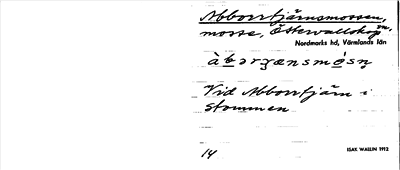 Abborrtjärnsmossen,
mosse, Östervallskog sn,
Nordmarks hd, Värmlands län
Vid Abborrtjärn i
Stommen
14
ISAK WALLIN 1912